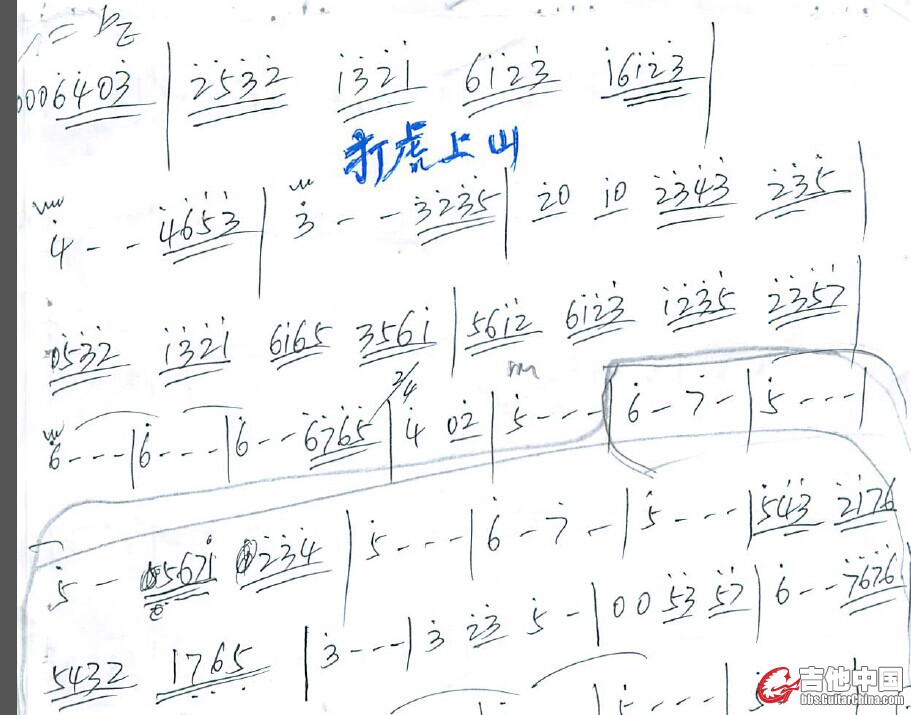 1=bE
0006403 | 2532 1321 6123 16123 |
打虎上山
4 - - 4653 | 3 - - 3235 | 20 10 2343 235 |
0532 1321 6165 3561 | 5612 6123 1235 2357 |
2/4
6 - - - | 6 - - - | 6 - - 6765 | 4 02 | 5 - - - | 6 - 7 - | 5 - - - |
5 - 5671 234 | 5 - - - | 6 - 7 - | 5 - - - | 543 2176
5432 1765 | 3 - - - | 3 23 5 - | 00 53 57 | 6 - - 7676
吉他中国
bbs.GuitarChina.com